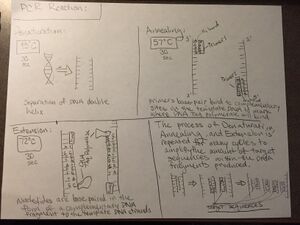 PCR Reaction:
Denaturation:
95°C
30
sec
Separation of DNA double
helix
Annealing:
57°C
30
sec
H-bond
Primer
3'
5'
Primer
Primers base pair bind to complementary
sites in the template DNA to mark
where DNA Taq polymerase will bind
Extension:
72°C
30
sec
Taq Polymerase
Nucleotides are base paired in the
form of a complementary DNA
fragment to the template DNA strands
The process of Denaturation,
Annealing, and Extension is
repeated for many cycles to
amplify the amount of target
sequences within the DNA
fragments produced.
TARGET SEQUENCES